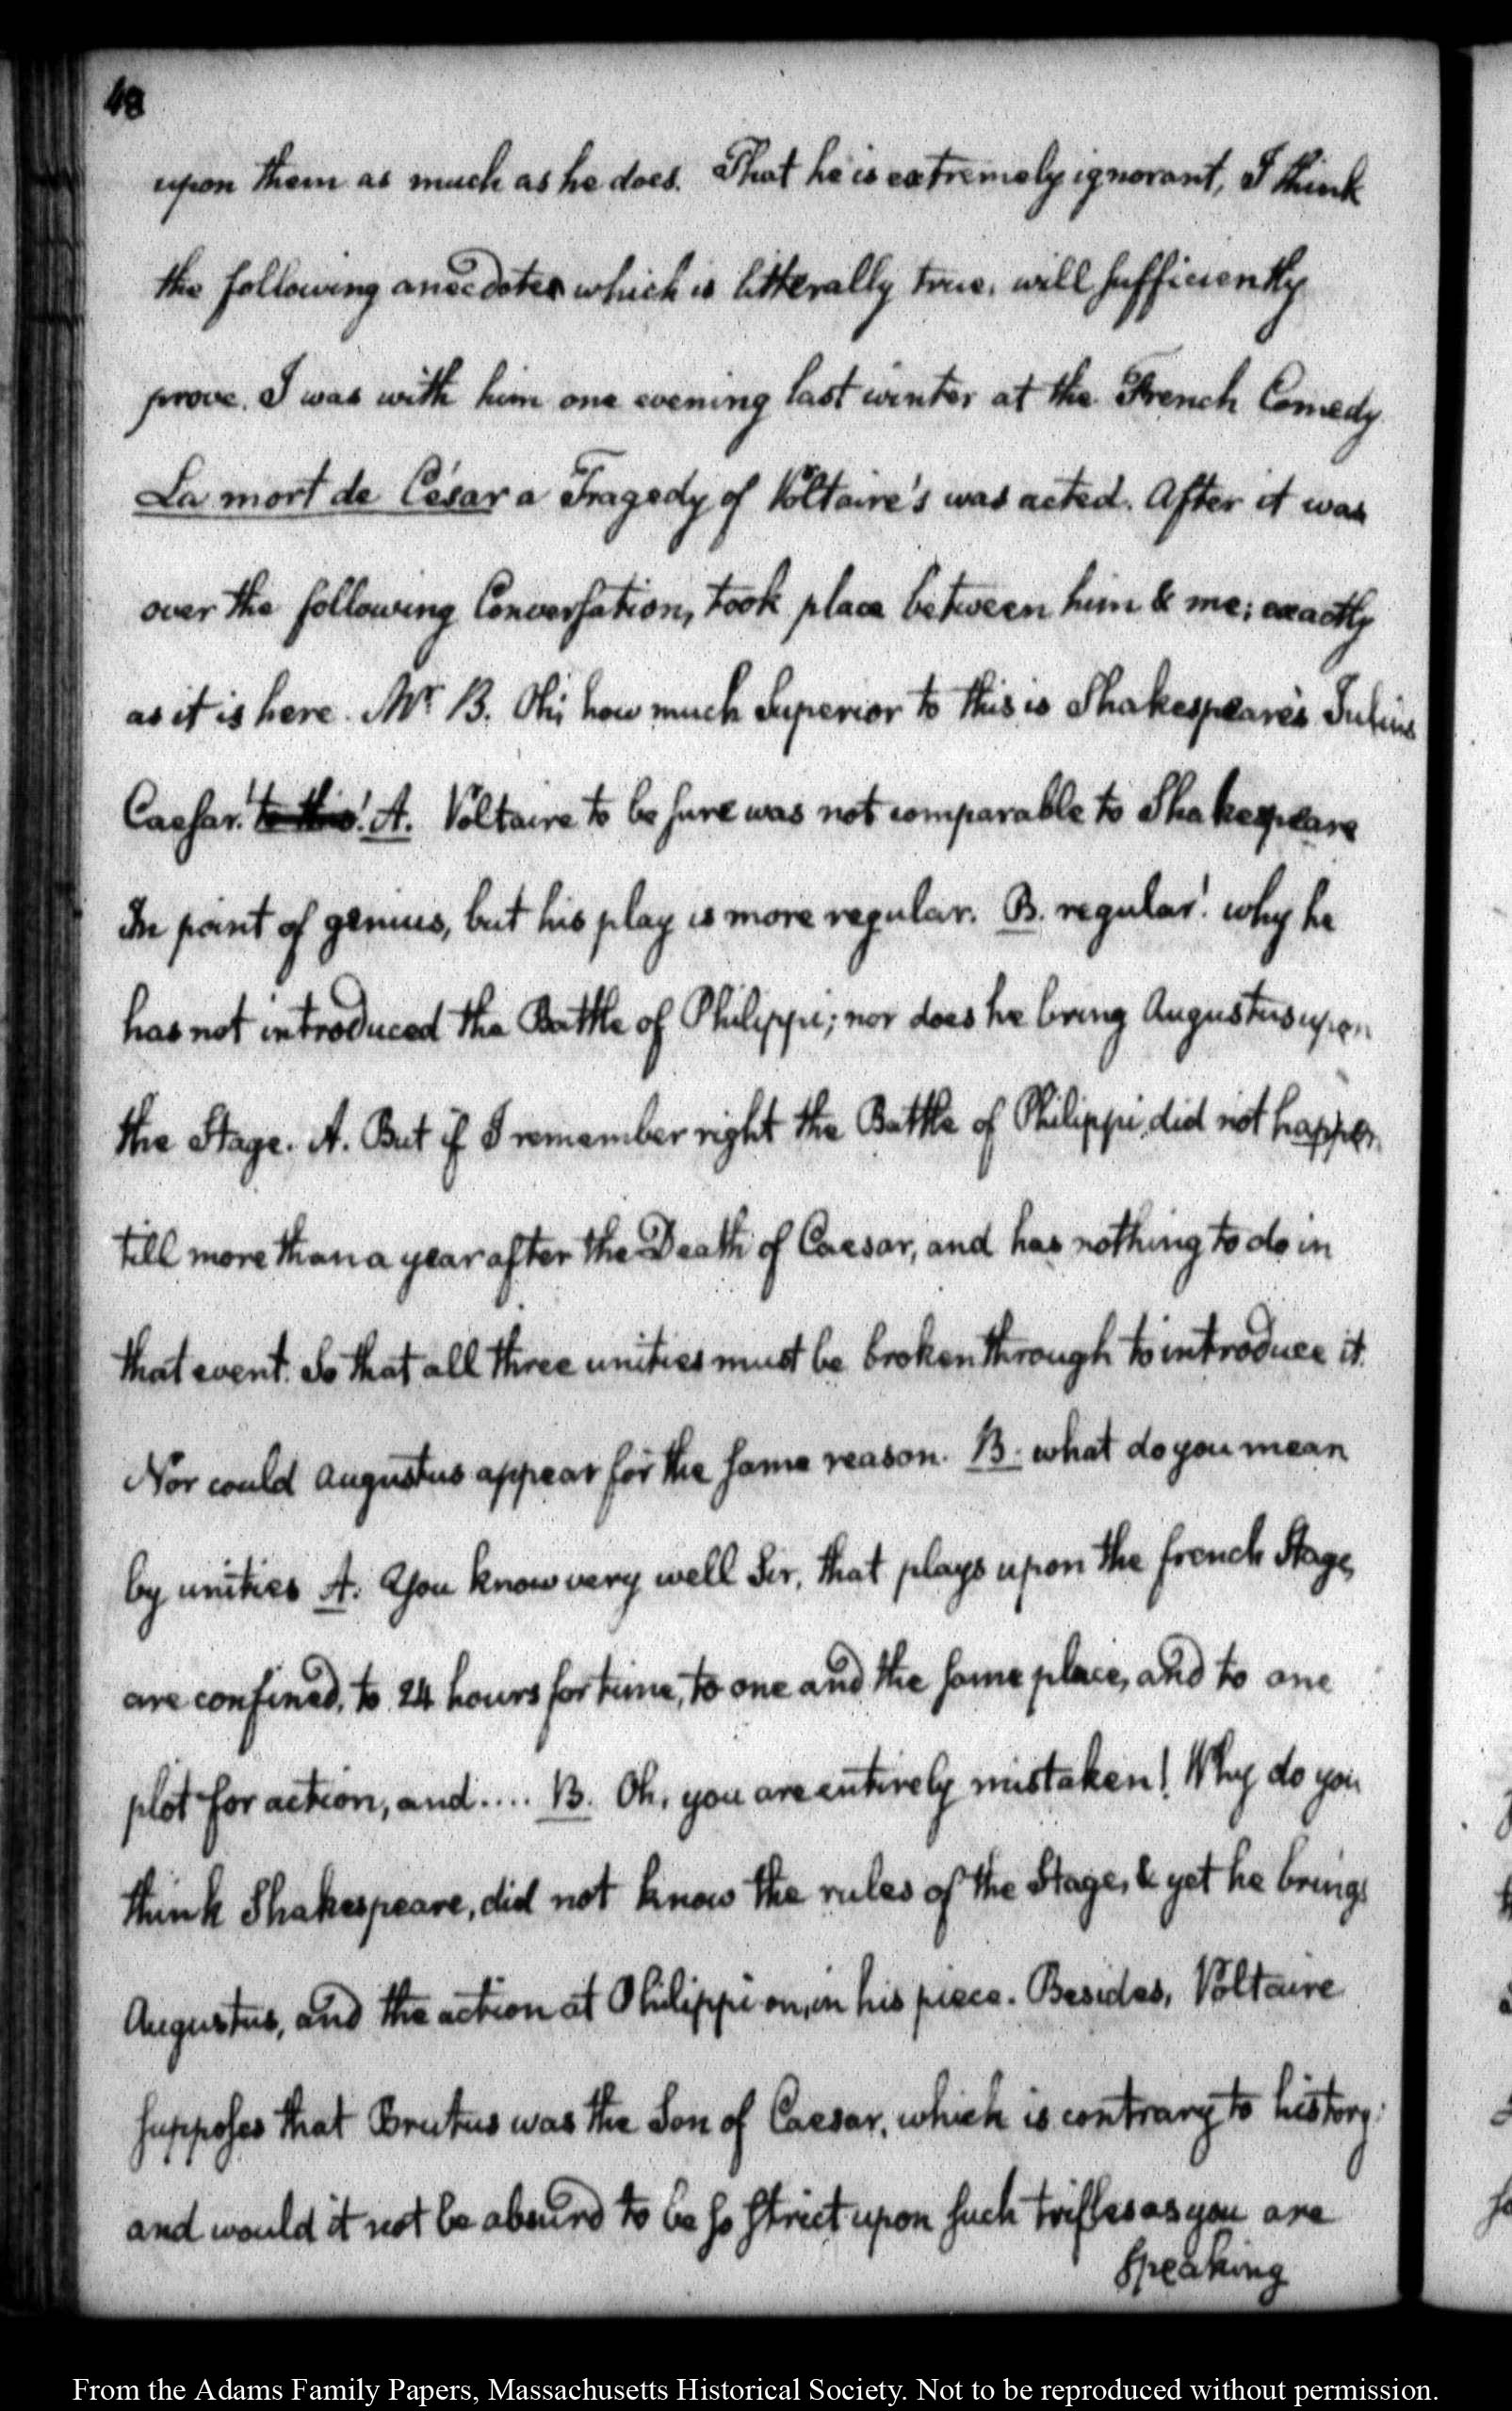 48
upon them as much as he does. That he is extremely ignorant, I think
the following anecdotes which is litterally true, will sufficiently
prove. I was with him one evening last winter at the French Comedy
La mort de César a Tragedy of Voltaire's was acted. After it was
over the following Conversation, took place between him & me; exactly
as it is here. Mr. B. Oh; how much Superior to this is Shakespeare's Julius
Caesar! to this! A. Voltaire to be sure was not comparable to Shakespeare
In point of genius, but his play is more regular. B. regular! why he
has not introduced the Battle of Philippi; nor does he bring Augustus upon
the Stage. A. But if I remember right the Battle of Philippi, did not happen
till more than a year after the Death of Caesar, and has nothing to do in
that event. So that all three unities must be broken through to introduce it.
Nor could Augustus appear for the same reason. B. what do you mean
by unities A. You know very well Sir, that plays upon the french Stage,
are confined, to 24 hours for time, to one and the same place, and to one
plot for action, and.... B. Oh, you are entirely mistaken! Why do you
think Shakespeare, did not know the rules of the Stage, & yet he brings
Augustus, and the action at Philippi on, in his piece. Besides, Voltaire
supposes that Brutus was the Son of Caesar, which is contrary to history:
and would it not be absurd to be so strict upon such trifles as you are
speaking
From the Adams Family Papers, Massachusetts Historical Society. Not to be reproduced without permission.